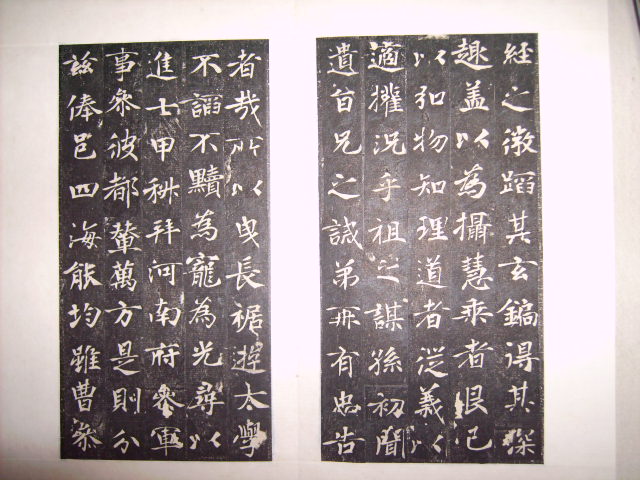 經之徵蹈其玄鏑得其深
趣盖以為攝慧乘者恨已
以弘物知理道者從義以
適權況乎祖之謀孫初聞
遺旨兄之誡弟再有忠告
者哉所以曳長裾遊太學
不謟不黷為寵為光尋以
進士甲科拜河南府參軍
事參彼都輦萬方是則分
茲俸邑四海能均雖曹參